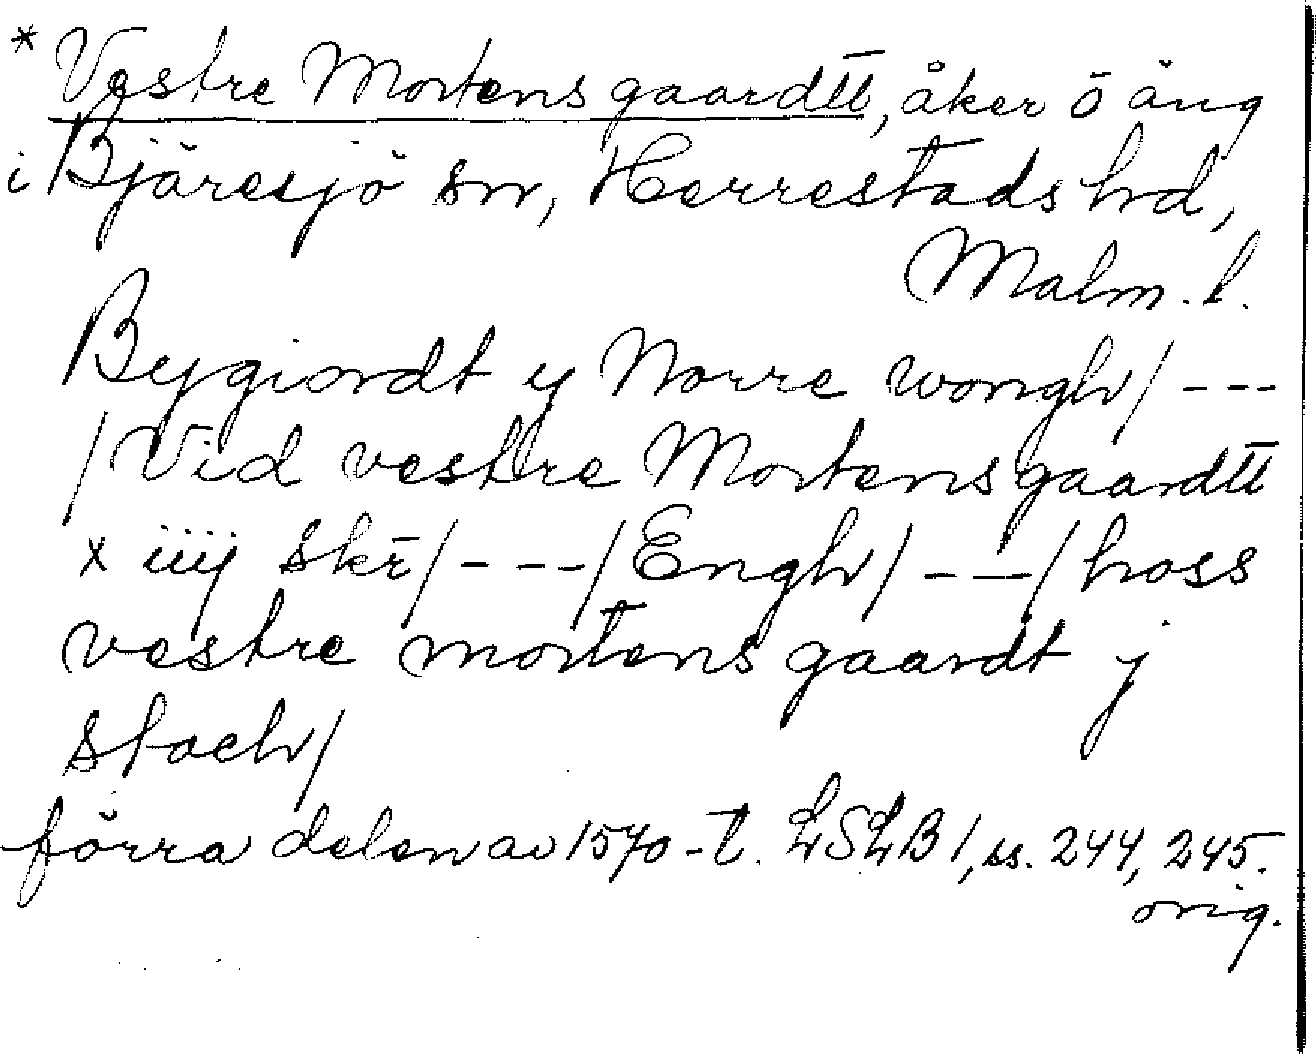 * Vestre Mortens gaardtt, åker ō äng
i Bjäresjö sn, Herrestads hd,
Malm. l.
Bygiordt y Norre wongh/ ---
/ Vid vestre Mortens gaardtt
x iiij skr̄/ --- / Engh/ --- / hoss
vestre mortens gaardt j
stoch/
förra delen av 1570-t. LSLB 1, ss. 244, 245.
orig.